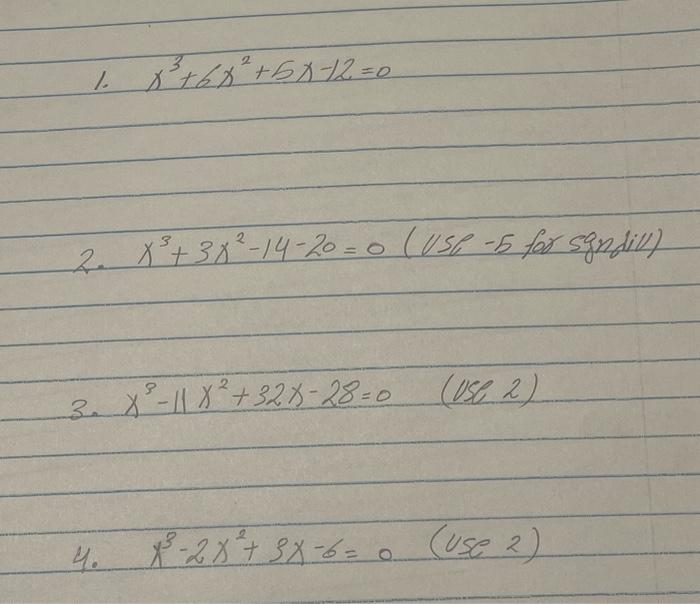 1. x³+6x²+5x-12=0
2. x³+3x²-14-20=0 (use -5 for syndiv)
3. x³-11x²+32x-28=0 (use 2)
4. x³-2x²+3x-6=0 (use 2)